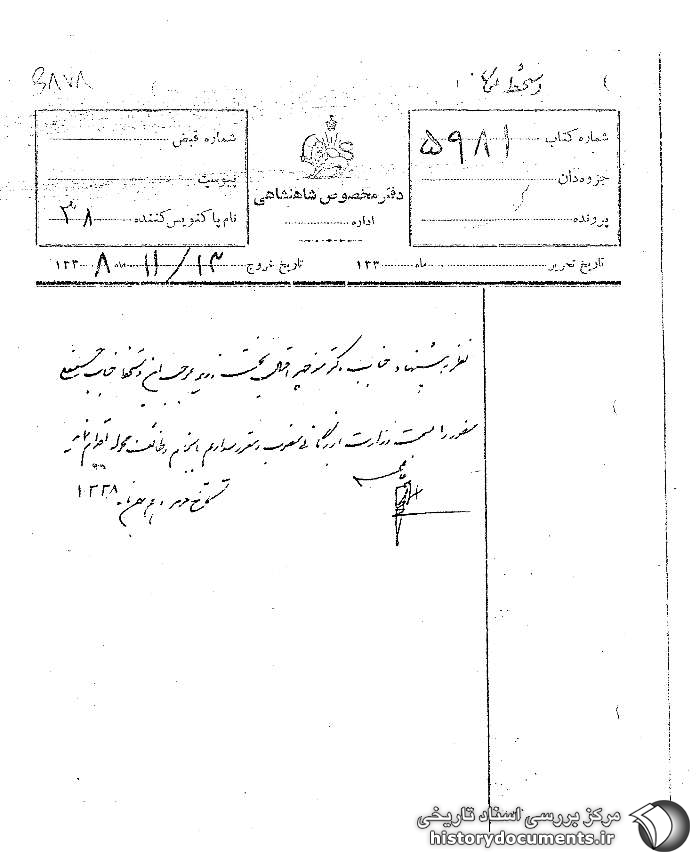 ۳۸۷۸
شماره کتاب ۵۹۸۱
جزوه‌دان
پرونده
دفتر مخصوص شاهنشاهی
اداره
شماره قبض
پیوست
نام پاکنویس کننده
تاریخ تحریر ماه ۱۳۳
تاریخ خروج ۱۳/۱۱ ماه ۱۳۳۰۸
نظر به پیشنهاد جناب دکتر منوچهر اقبال نخست وزیر بموجب این دستخط جناب حسنعلی
منصور را بسمت وزارت بازرگانی منصوب و مقرر میداریم بانجام وظائف محوله اقدام نماید
بتاریخ ماه ۱۳۳۸
مرکز بررسی اسناد تاریخی
historydocuments.ir